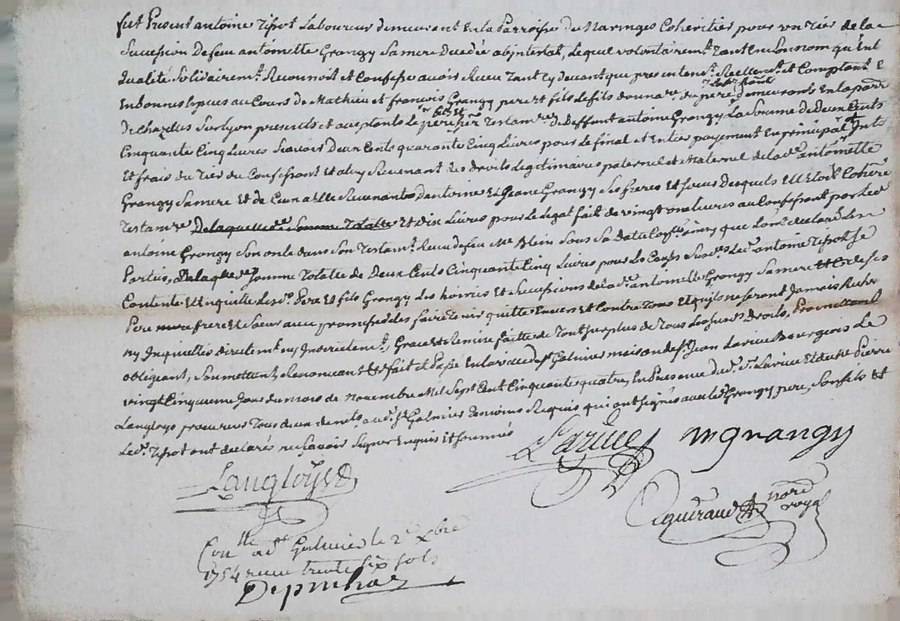 fut Present antoine Tipot Laboureur demeurant En la Parroisse de Maringes Coheritier pour un Tier de la
Succession De feu antoinette Grangy Sa mere Decedée abjntestat, Lequel volontairemt. Tant En Son nom qu'En
qualité Solidairemt. Reconnoit et Confesse avoir Receu Tant Cy devant que presentemt. Reellemt. et Comptant E
En bonnes Especes au Cours de Mathieu et françois Grangy pere et fils Le fils donnare. du pere demeurants En la parr
de Chazelles Sur Lyon presents et acceptants Le pere hr. Testamre. de Deffunt antoine Grangy La Somme de Deux Cents
Cinquante Cinq Livres Scavoir Deux Cents quarante Cinq Livres pour Le final et Entier payement En principal Jnts
Et frais du Tier du Confessant et a luy Revenant des droits Legitimaires paternel et Maternel de lad. antoinette
Grangy Sa mere Et de Ceux a Elle Revenants D'antoine Et Jeane Grangy Ses freres Et Soeur Desquels Elle Etoit Coherre
Testamre De laquelle de. Somme Totalle Et Dix Livres pour Le Legat fait de vingt au Confessant par Led
antoine Grangy Son oncle dans Son Testamt. Receu De feu Me Blein Sous Sa Datte
parties, De laquelle Somme Totalle de Deux Cents Cinquante Cinq Livres pour Les Causes Susd. Led. antoine Tipot Se
Contente Et En quitte Lesd. Pere et fils Grangy Les hoiries et Successions de lad. antoinette Grangy Sa mere Et de Ses
Pere mere frere Et Soeur avec promesses des faire Tenir quitte Envers et Contre Tous Et quils ne Seront Jamais Recher
Ny Jnquietés directemt. ny Jndirectemt., Grace et Remise faitte de Tout Surplus de Tous Promettant
obligeant, Soumettant, Renonceant &a fait et Passé En la ville de St Galmier maison de Sr. Jean Larive Bourgeois Le
vingt Cinquieme Jour du mois de novembre Mil Sept Cent Cinquante quatre, En Presence dud. Sr. Larive Et de Me Pierre
Langloys procureur Tous deux demts. aud. St Galmier Temoins Requis qui ont Signés avec led Grangy pere, Son fils Et
Led. Tipot ont declarés ne Scavoir Signer Enquis Et Sommés
Larive mgrangy
Langloys
Regueraud nore royal
Conlle a St Galmier le 2e Xbre
1754 receu trente six sols